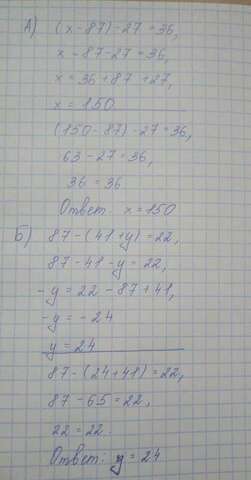 А) (x - 87) - 27 = 36,
x - 87 - 27 = 36,
x = 36 + 87 + 27,
x = 150
(150 - 87) - 27 = 36,
63 - 27 = 36,
36 = 36
Ответ: x = 150
Б) 87 - (41 + y) = 22,
87 - 41 - y = 22,
- y = 22 - 87 + 41,
- y = - 24
y = 24
87 - (24 + 41) = 22,
87 - 65 = 22,
22 = 22.
Ответ: y = 24